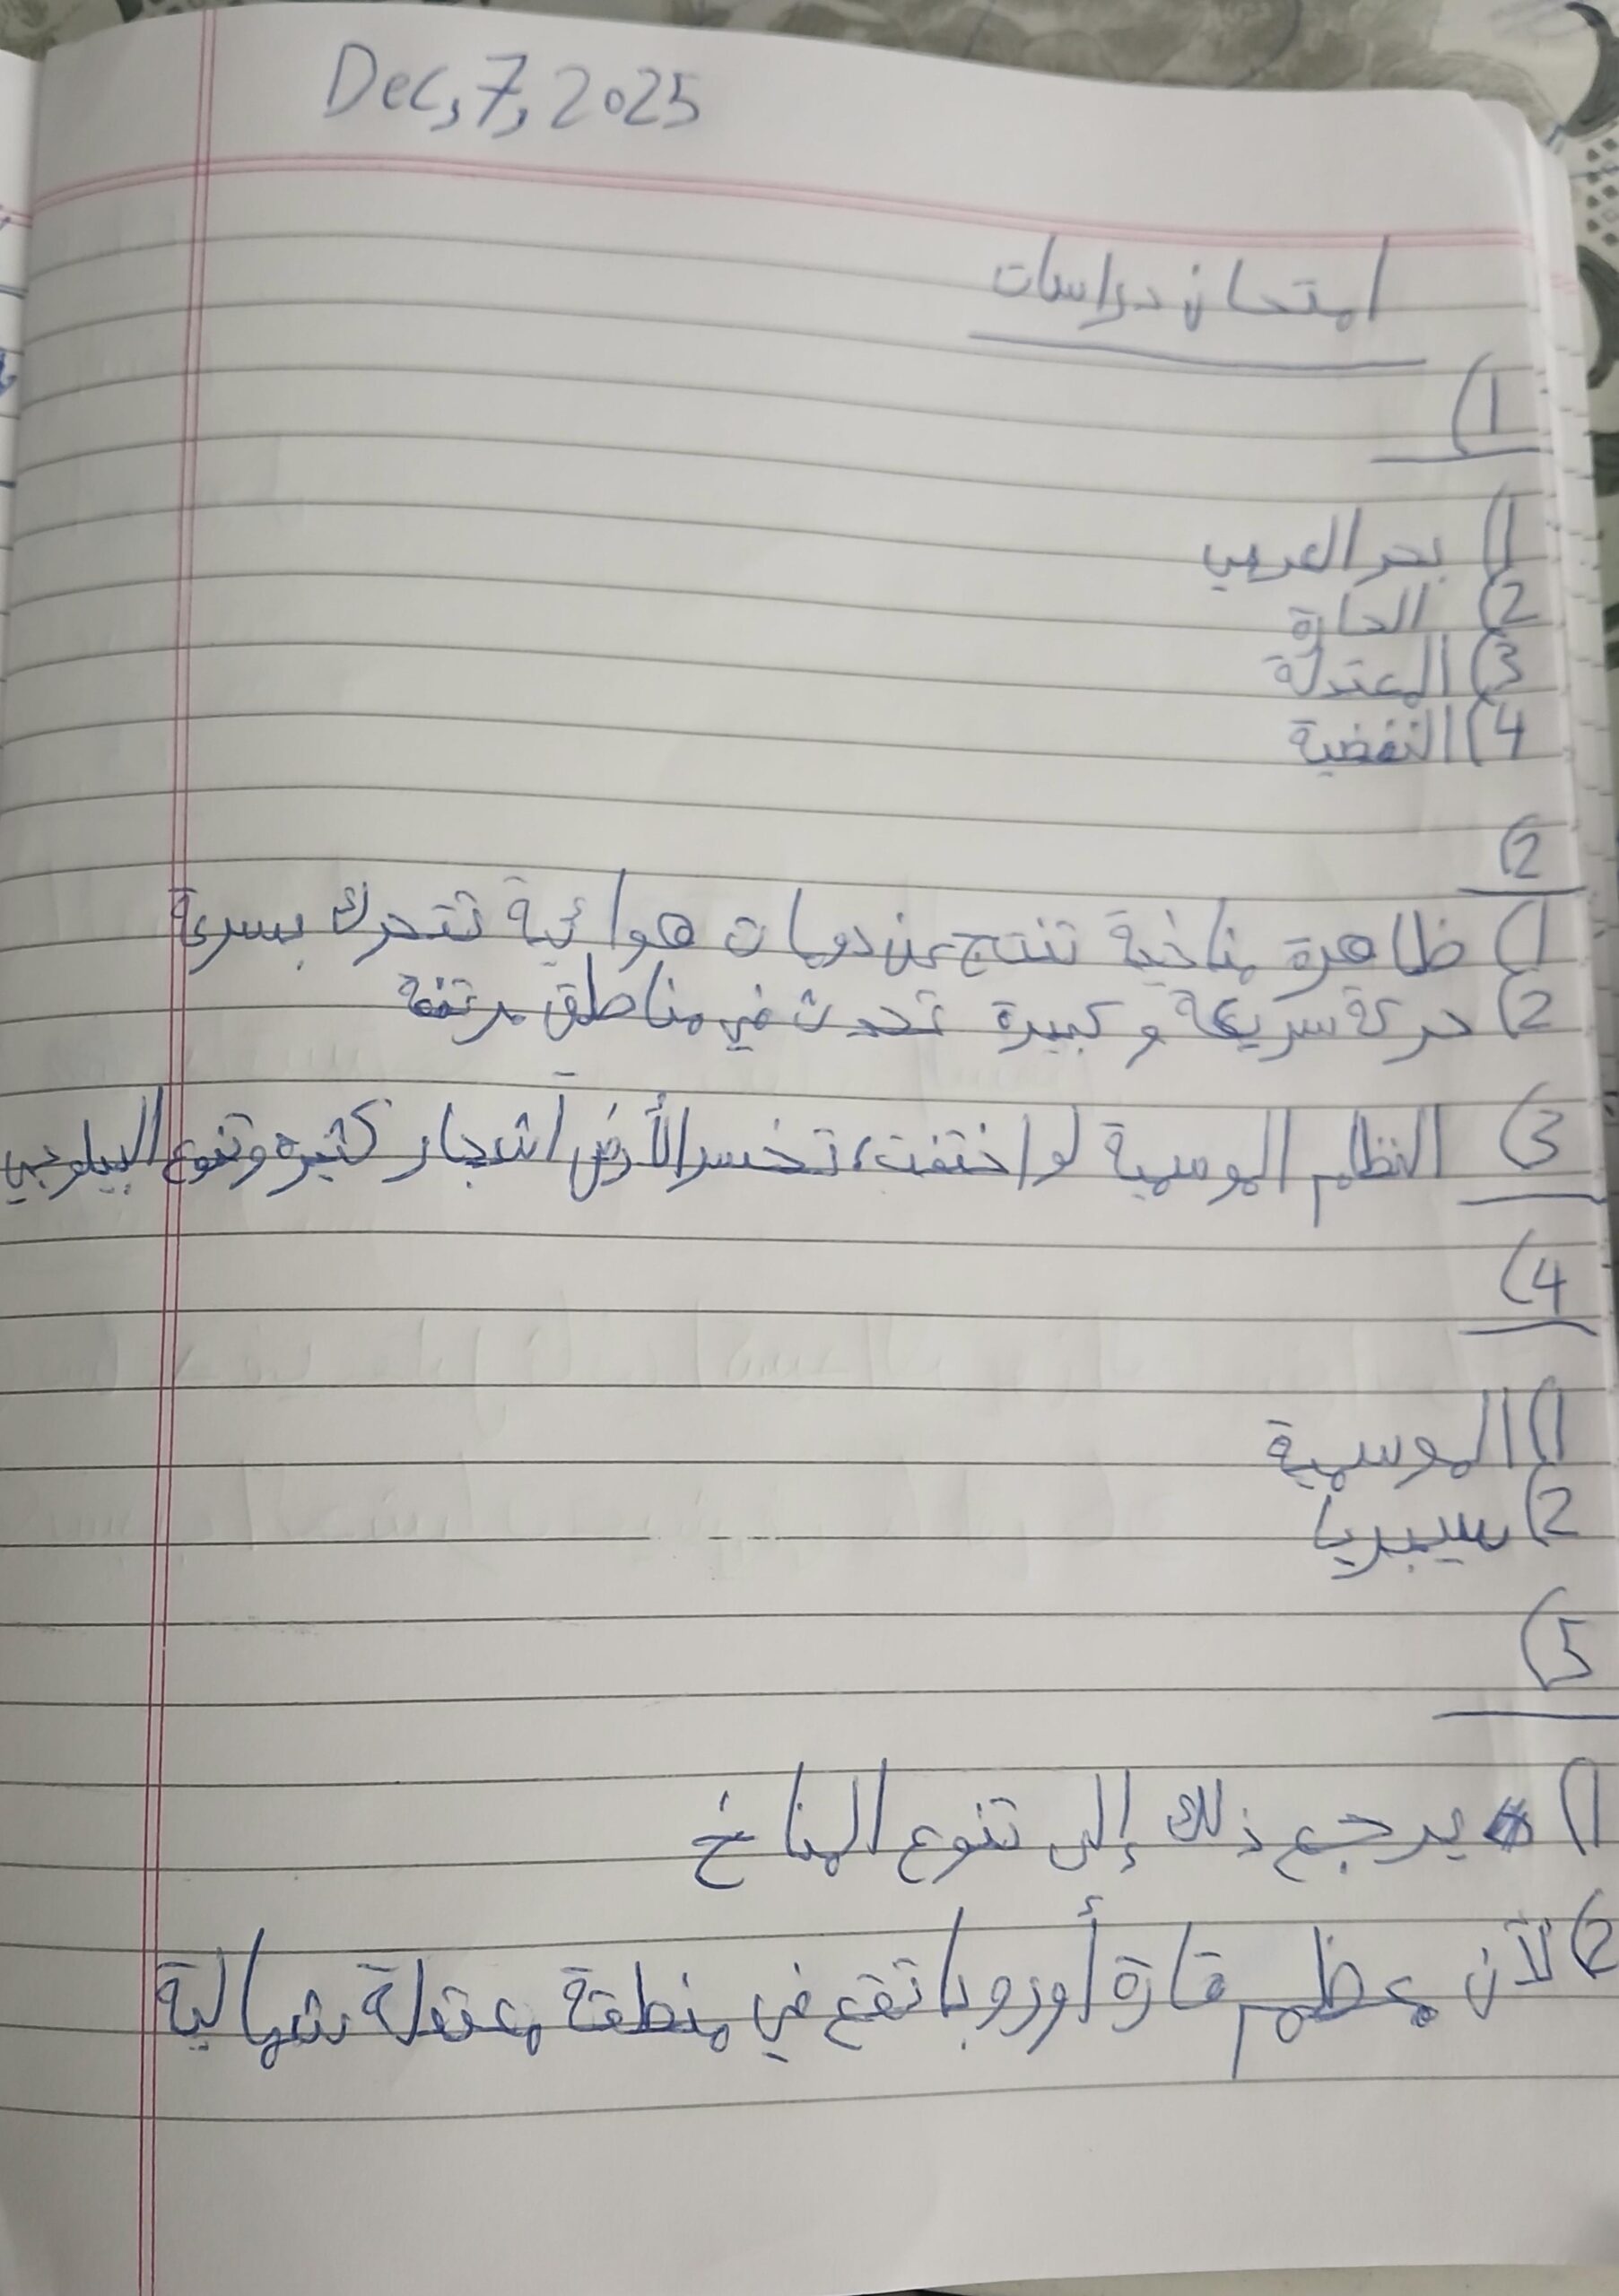 Dec,7,2025
امتحان دراسات
1)
1) بحر العربي
2) الحارة
3) المعتدلة
4) النفضية
2)
1) ظاهرة مناخية تنتج عن دومات هوائية تتحرك بسرعة
2) حركة سريعة و كبيرة تحدث في مناطق مرتفعة
3) النظم الموسمية لو اختفت، تخسر الأرض اشجار كثيره وتنوع البيلوجي
4)
1) الموسمية
2) سيبريا
5)
1) يرجع ذلك إلى تنوع المناخ
2) لأن معظم قارة أوروبا تقع في منطقة معتدلة شمالية